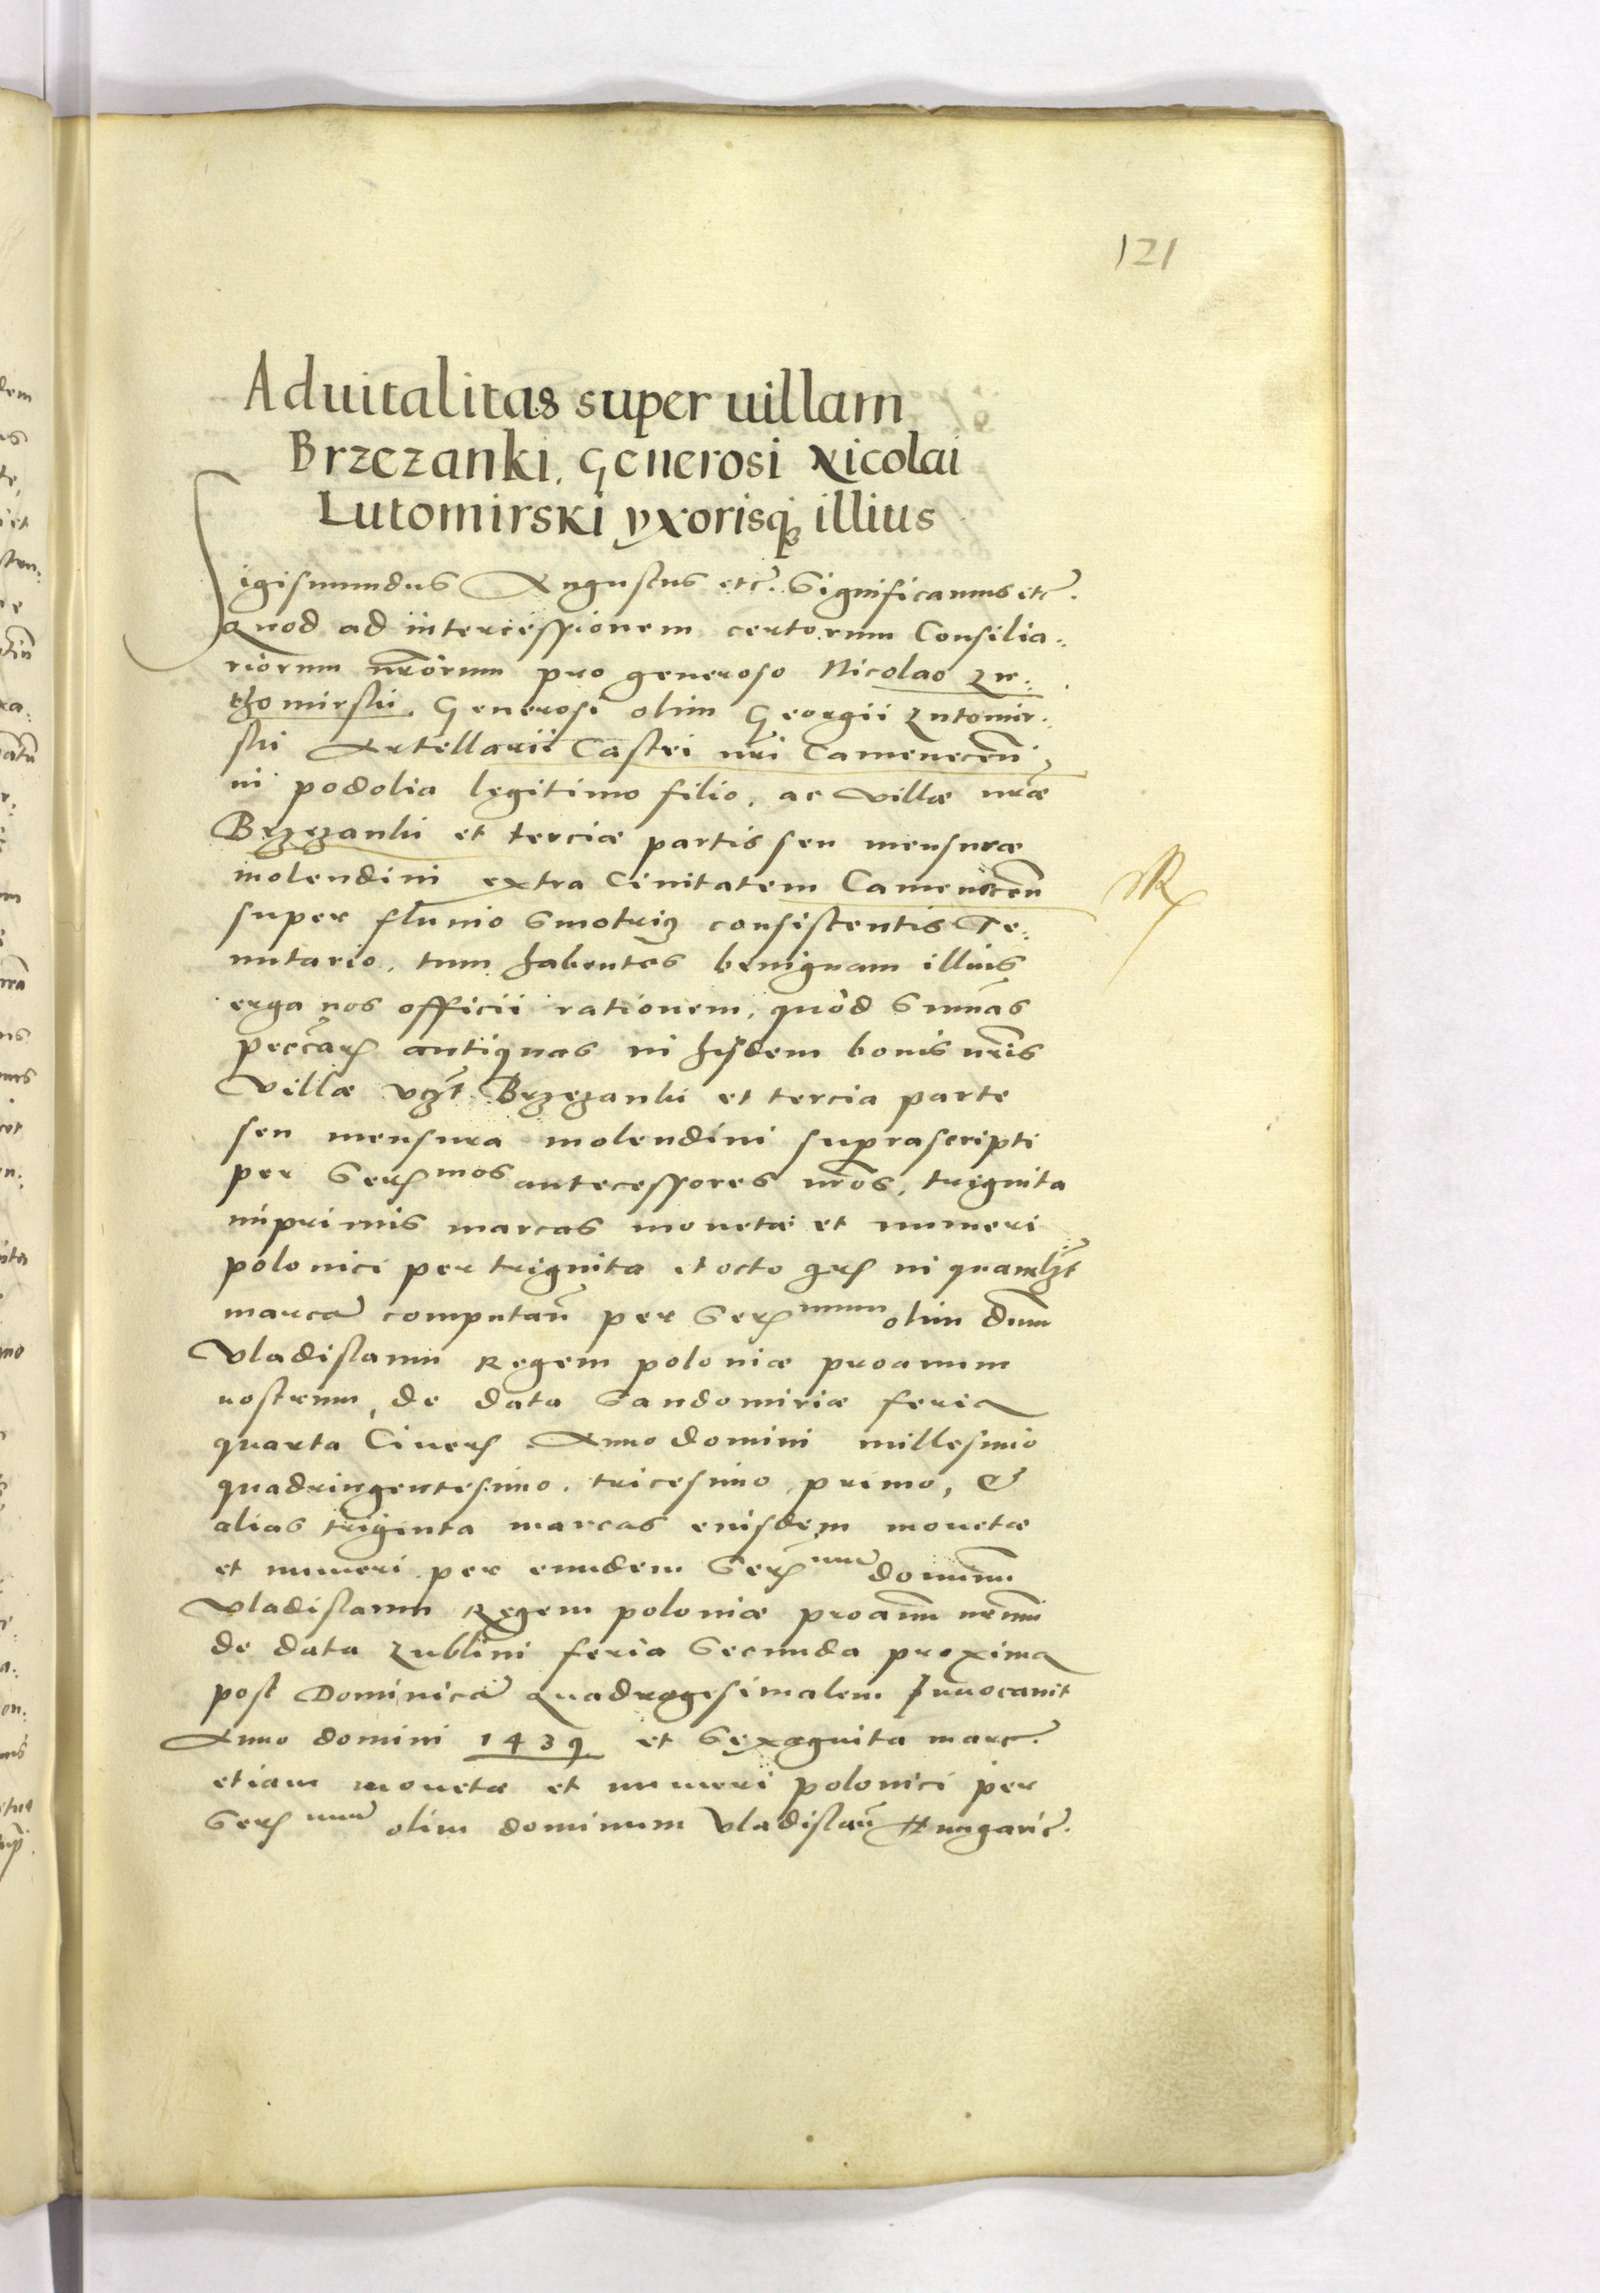 121
Aduitalitas super uillam
Brzezanki, Generosi Nicolai
Lutomirski vxorisq illius
Sigismundus Augustus etc. Significamus etc.
Quod ad intercessionem certorum Consilia:
riorum nrorum pro generoso Nicolao Lu:
thomirski, Generosi olim Georgii Lutomir:
ski Artellarii Castri nri Camenecen
in podolia legitimo filio, ac villæ nræ
Brzezanki et terciæ partis seu mensuræ
molendini extra Ciuitatem Camenecen
super fluuio Smotricz consistentis Te:
nutario, tum habentes benignam illius
erga nos officii rationem, quod summas
peccar antiquas in hisdem bonis nris
Villæ vczt Brzezanki et tercia parte
seu mensura molendini suprascripti
per Sermos antecessores nros, triginta
inprimis marcas monetæ et numeri
polonici per triginta et octo grs in quamlzt
marca computan per Sermum olim dnm
Vladislaum Regem poloniæ proauum
nostrum, de data Sandomiriæ feria
quarta Ciner Anno domini millesimo
quadringentesimo, tricesimo, primo, &
alias triginta marcas eiusdem monetæ
et numeri per eundem Sermum dominum
Vladislaum Regem poloniæ proauum nrum
de data Lublini feria Secunda proxima
post Dominica Quadragesimalem Inuocauit
Anno domini 1439 et Sexaginta marc.
etiam monetæ et numeri polonici per
Sermum olim dominum Vladislaum Hungariæ.